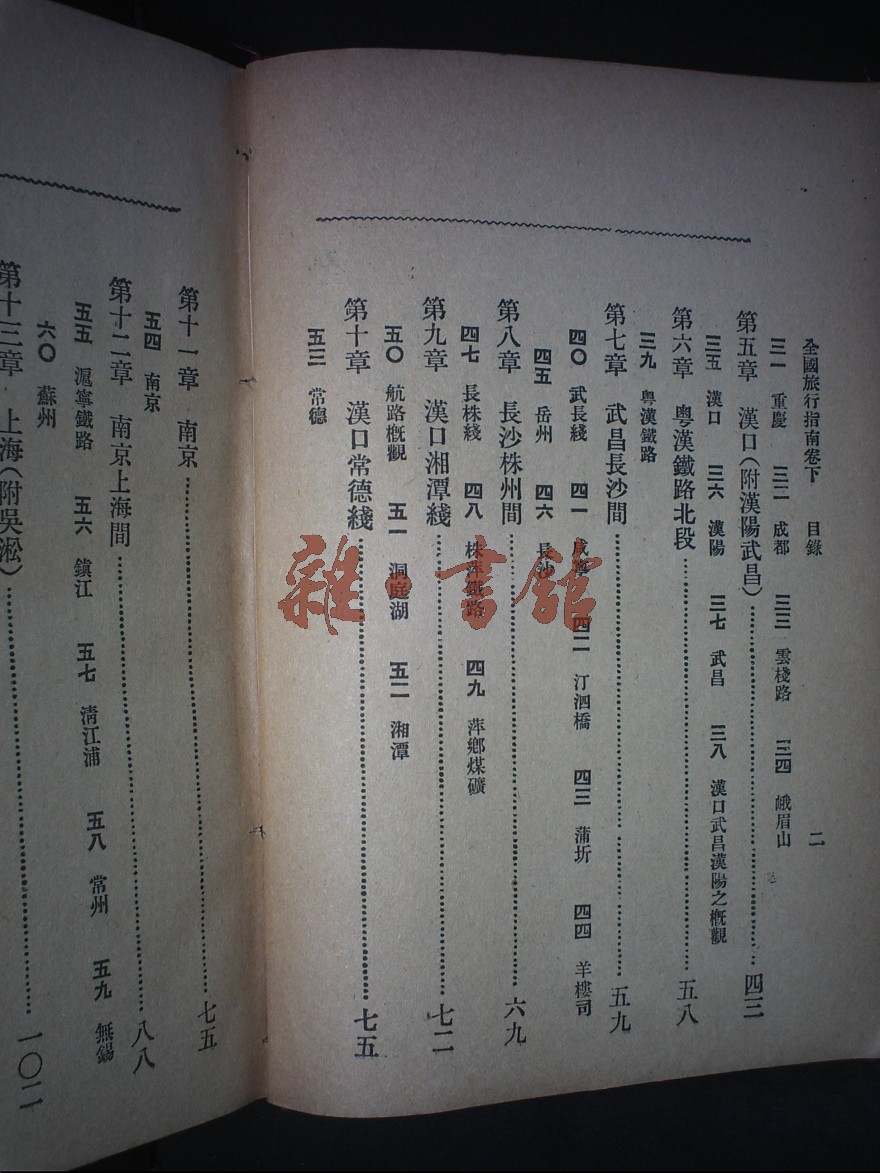 全國旅行指南卷下　目錄　二
三一　重慶　三二　成都　三三　雲棧路　三四　峨眉山
第五章　漢口(附漢陽武昌)……四三
三五　漢口　三六　漢陽　三七　武昌　三八　漢口武昌漢陽之概觀
第六章　粵漢鐵路北段……五八
三九　粵漢鐵路
第七章　武昌長沙間……五九
四〇　武長綫　四一　咸寧　四二　汀泗橋　四三　蒲圻　四四　羊樓司
四五　岳州　四六　長沙
第八章　長沙株州間……六九
四七　長株綫　四八　株萍鐵路　四九　萍鄉煤礦
第九章　漢口湘潭綫……七二
五〇　航路概觀　五一　洞庭湖　五二　湘潭
第十章　漢口常德綫……七五
五三　常德
第十一章　南京……七五
五四　南京
第十二章　南京上海間……八八
五五　滬寧鐵路　五六　鎮江　五七　清江浦　五八　常州　五九　無錫
六〇　蘇州
第十三章　上海(附吳淞)……一〇二
雜·書館